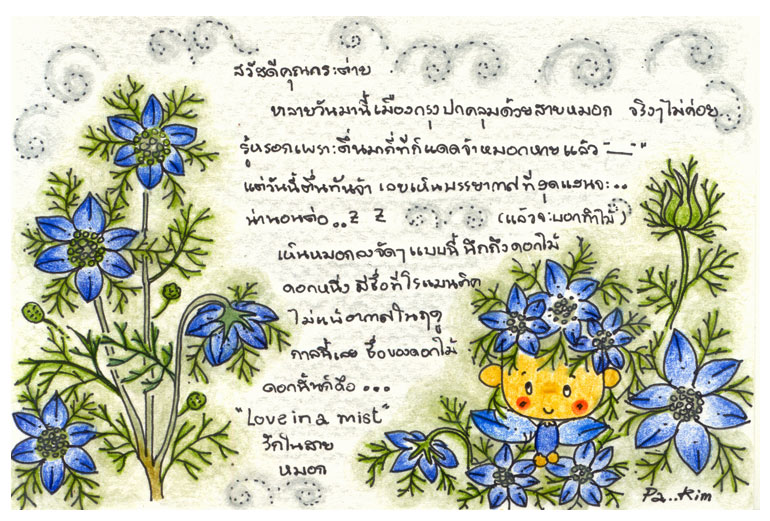 สวัสดีคุณกระต่าย
หลายวันมานี้เมืองกรุงปกคลุมด้วยสายหมอก จริงๆไม่ค่อย..
รู้หรอกเพราะตื่นมากี่ทีก็แดดจ้าหมอกหายแล้ว "—"
แต่วันนี้ตื่นทันจ้า เลยเห็นบรรยากาศที่สุดแสนจะ..
น่านอนต่อ..Z Z (แล้วจะบอกทำไม)
เห็นหมอกลงจัดๆแบบนี้ นึกถึงดอกไม้
ดอกหนึ่ง มีชื่อที่โรแมนติค
ไม่แพ้อากาศในฤดู
กาลนี้เลย ชื่อของดอกไม้
ดอกนั้นก็คือ...
"Love in a mist"
รักในสาย
หมอก
Pa..Kim